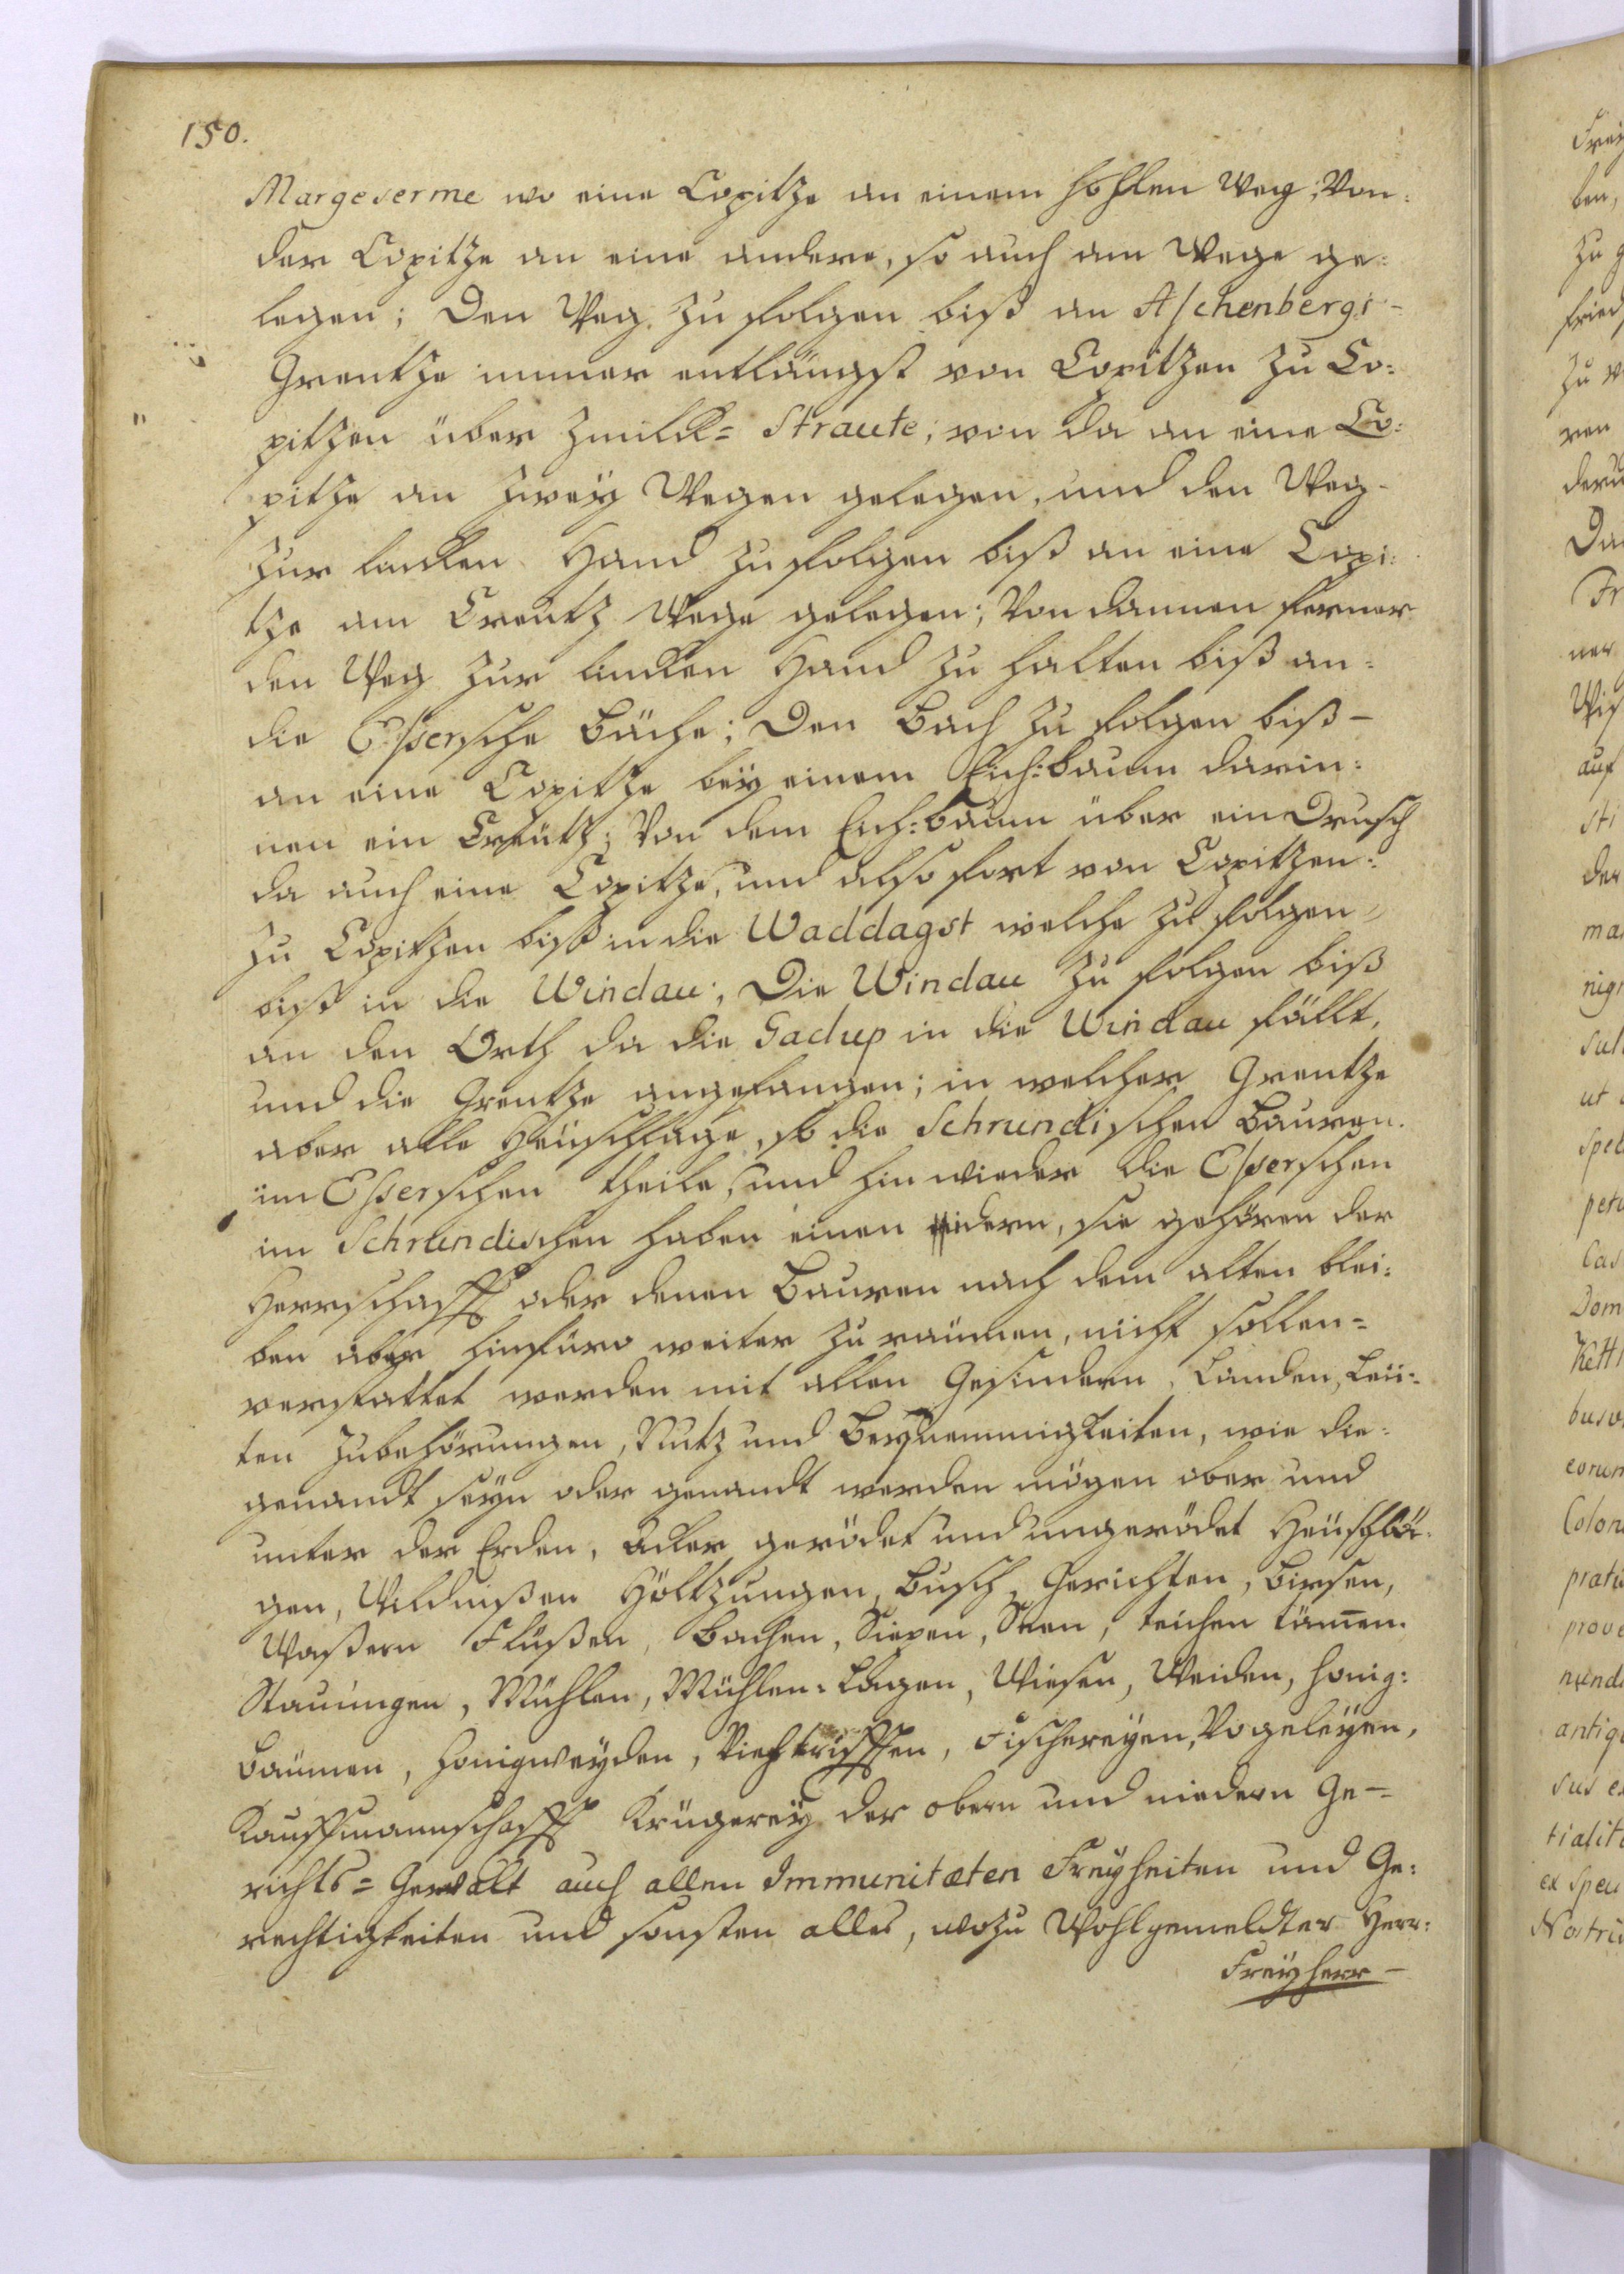 150.
Margeverme wo eine Copitze an einem hohlen Weg; Von:
der Copitze an eine andere, so auch am Wege ge:
legen; Den Weg zu folgen biß an Aschenbergs-
Grentze immer entlängst von Copitzen zu Co:
pitzen über Straute; von da an eine Co:
pitze an zwey Wegen gelegen, und den Weg-
zur lincken Hand zu folgen biß an eine Copi:
tze am Creutz Wege gelegen; Von dannen ferner
den Weg zur lincken Hand zu halten biß an:
die Essersche Bäche; Den Bach zu folgen biß-
an eine Copitze bey einem Eich:baum darin:
nen ein Creütz; Von dem Eich:baum über ein Brusch
da auch eine Copitze, und also fort von Copitzen:
zu Copitzen biß in die Waddagst welche zu folgen
biß in die Windau; Die Windau zu folgen biß
an den Orth da die Gadup in die Windau fällt,
und die Grentze angefangen; in welcher Grentze
aber alle Heüschläge, so die Schrundischen Bauren
im Esserschen theile, und hinwieder die Esserschen
im Schrundischen haben einen jedern, sie gehören der
Herrschafft oder denen Bauren nach dem alten blei:
ben aber hinfüro weiter zu räumen, nicht sollen=
verstattet werden mit allen Gesindern, Landen, Leü:
ten Zubehörungen, Nutz und Bequemmigkeiten, wie die:
genandt seyn oder genandt werden mögen ober und
unter der Erden, Acker gerödet und ungerödet Heüschlä:
gen, Wildnißen Höltzungen, Busch, Gerichten, Birsen,
Waßern Flüßen, Bachen, Siepen, Seen, teichen tämen.
Stauungen, Mühlen, Mühlen-Lagen, Wiesen, Weiden, honig:
Bäumen, Honigweyden, Viehtrifften, Fischereyen, Vogeleyen,
Kauffmannschafft Krügerey der obern und niedern Ge-
richts= Gewalt auch allen Immunitæten Freyheiten und Ge:
rechtigkeiten und sonsten alles, wozu Wohlgemeldter Herr:
Freyherr-